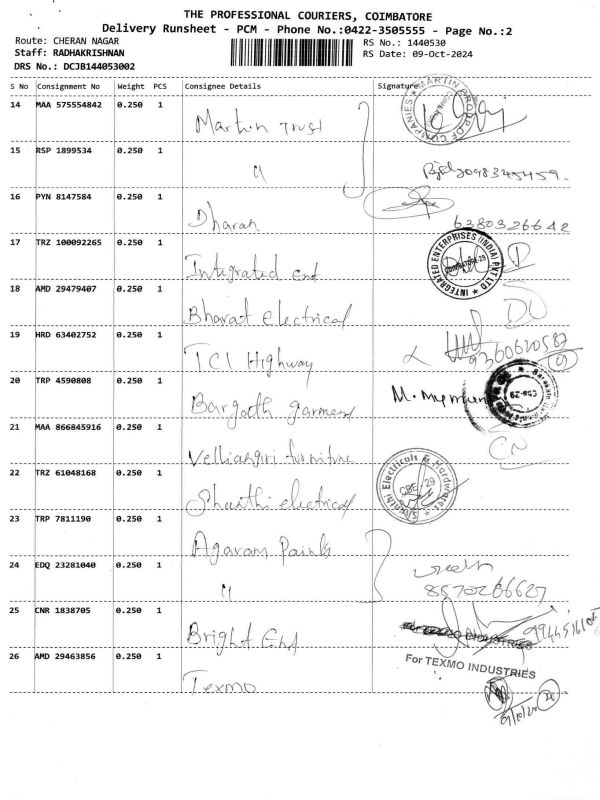 THE PROFESSIONAL COURIERS, COIMBATORE
Delivery Runsheet - PCM - Phone No.:0422-3505555 - Page No.:2
Route: CHERAN NAGAR RS No.: 1440530
Staff: RADHAKRISHNAN RS Date: 09-Oct-2024
DRS No.: DCJB144053002
S No Consignment No Weight PCS Consignee Details Signature
14 MAA 575554842 0.250 1
Martin Trust
MARTIN GROUP OF COMPANIES
15 RSP 1899534 0.250 1
"
16 PYN 8147584 0.250 1
Dharan 6380326642
17 TRZ 100092265 0.250 1
Integrated End
INTEGRATED ENTERPRISES (INDIA) PVT LTD
COIMBATORE-29
18 AMD 29479407 0.250 1
Bharat electrical
19 HRD 63402752 0.250 1
TCI Highway 9360620587
20 TRP 4590808 0.250 1
garment
Cbe-29
21 MAA 866845916 0.250 1
Velliangiri furniture CN
22 TRZ 61048168 0.250 1
Shanthi electrical
Shanthi Electricals & Hardwares
CBE-29
23 TRP 7811190 0.250 1
Agaram Paints
24 EDQ 23281040 0.250 1
"
25 CNR 1838705 0.250 1
Bright End
INDUSTRIES
26 AMD 29463856 0.250 1
For TEXMO INDUSTRIES
Texmo